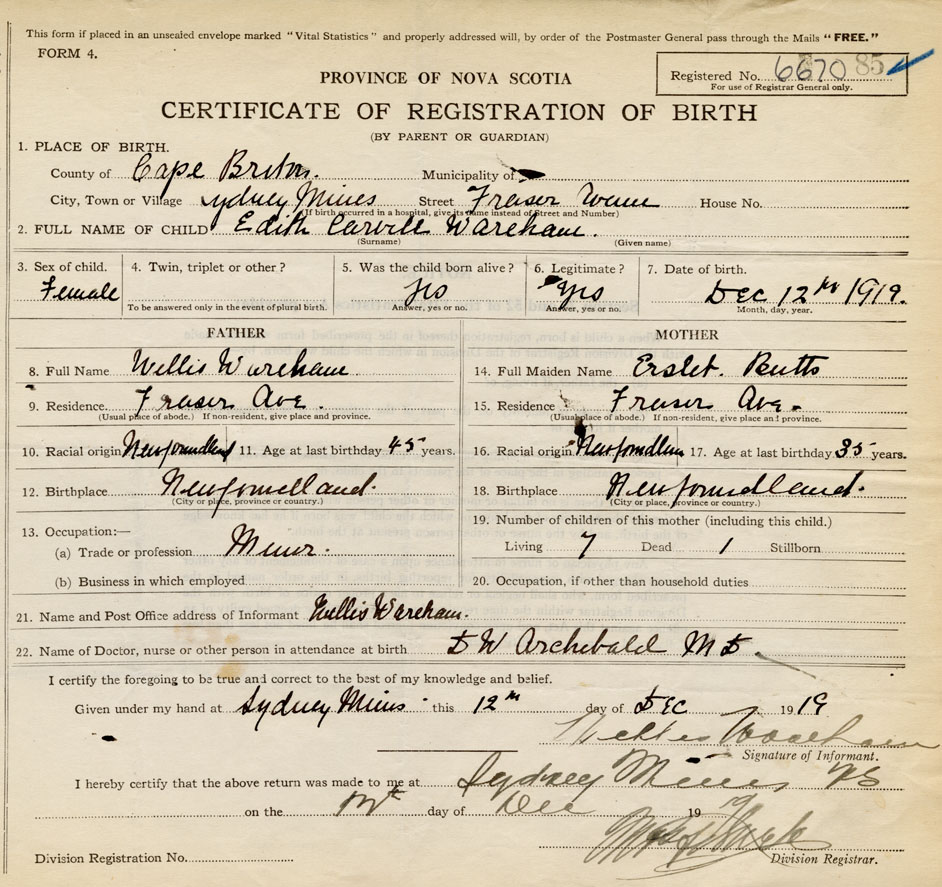 This form if placed in an unsealed envelope marked "Vital Statistics" and properly addressed will, by order of the Postmaster General pass through the Mails "FREE."
FORM 4.
PROVINCE OF NOVA SCOTIA
Registered No. 6670 85
For use of Registrar General only.
CERTIFICATE OF REGISTRATION OF BIRTH
(BY PARENT OR GUARDIAN)
1. PLACE OF BIRTH.
County of Cape Breton. Municipality of
City, Town or Village Sydney Mines Street Fraser House No.
(If birth occurred in a hospital, give its name instead of Street and Number)
2. FULL NAME OF CHILD Edith Carvell Wareham.
(Surname) (Given name)
3. Sex of child. 4. Twin, triplet or other? 5. Was the child born alive? 6. Legitimate? 7. Date of birth.
Female yes yes Dec 12th 1919.
To be answered only in the event of plural birth. Answer, yes or no. Answer, yes or no. Month, day, year.
FATHER MOTHER
8. Full Name Willis Wareham. 14. Full Maiden Name Butts
9. Residence. Fraser Ave. 15. Residence Fraser Ave.
(Usual place of abode.) If non-resident, give place and province. (Usual place of abode.) If non-resident, give place and province.
10. Racial origin Newfoundland 11. Age at last birthday 45 years. 16. Racial origin Newfoundlan 17. Age at last birthday 35 years.
12. Birthplace Newfoundland. 18. Birthplace Newfoundland.
(City or place, province or country.) (City or place, province or country.)
13. Occupation:— 19. Number of children of this mother (including this child.)
(a) Trade or profession Miner. Living 7 Dead 1 Stillborn
(b) Business in which employed 20. Occupation, if other than household duties
21. Name and Post Office address of Informant Willis Wareham.
22. Name of Doctor, nurse or other person in attendance at birth D W Archibald M D.
I certify the foregoing to be true and correct to the best of my knowledge and belief.
Given under my hand at Sydney Mines this 12th day of Dec 1919
Willis Wareham
Signature of Informant.
I hereby certify that the above return was made to me at Sydney Mines NS
on the day of Dec 1919
Division Registration No. Division Registrar.